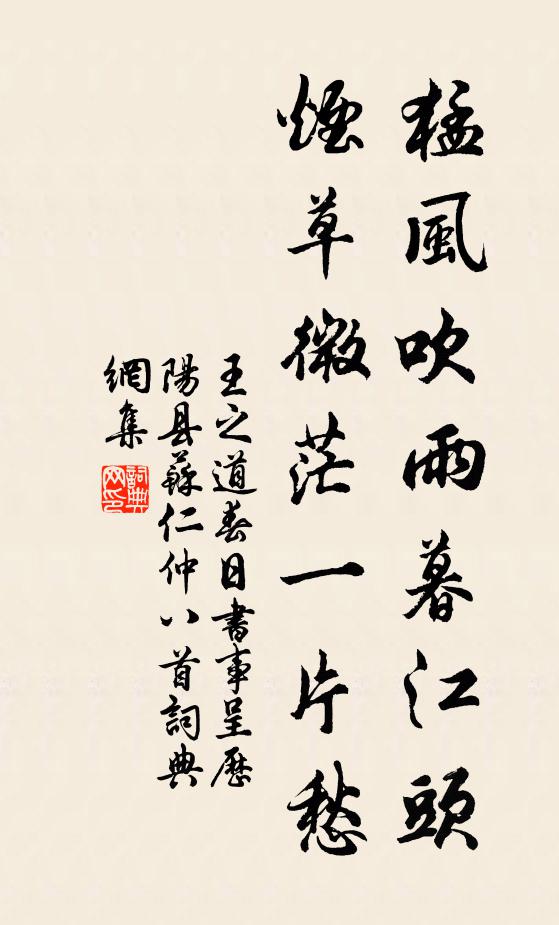 猛風吹雨暮江頭
煙草微茫一片愁
王之道春日書事呈歷
陽县蘇仁仲八首詞典
網集
詞典
网印